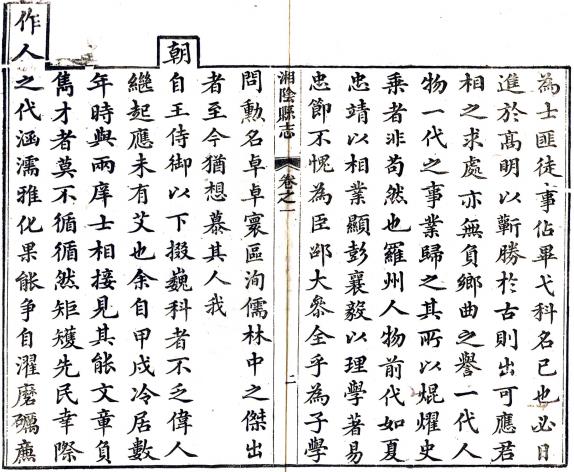 為士匪徒事佔畢弋科名已也必日
進於高明以蘄勝於古則出可應君
相之求處亦無負鄉曲之譽一代人
物一代之事業歸之其所以焜燿史
乘者非苟然也羅州人物前代如夏
忠靖以相業顯彭襄毅以理學著易
忠節不愧為臣邵大參全乎為子學
湘陰縣志 卷之一 二
問勳名卓卓寰區洵儒林中之傑出
者至今猶想慕其人我
朝自王侍御以下掇巍科者不乏偉人
繼起應未有艾也余自甲戌冷居數
年時與兩庠士相接見其能文章負
雋才者莫不循循然矩矱先民幸際
作人之代涵濡雅化果能爭自濯磨礪廉